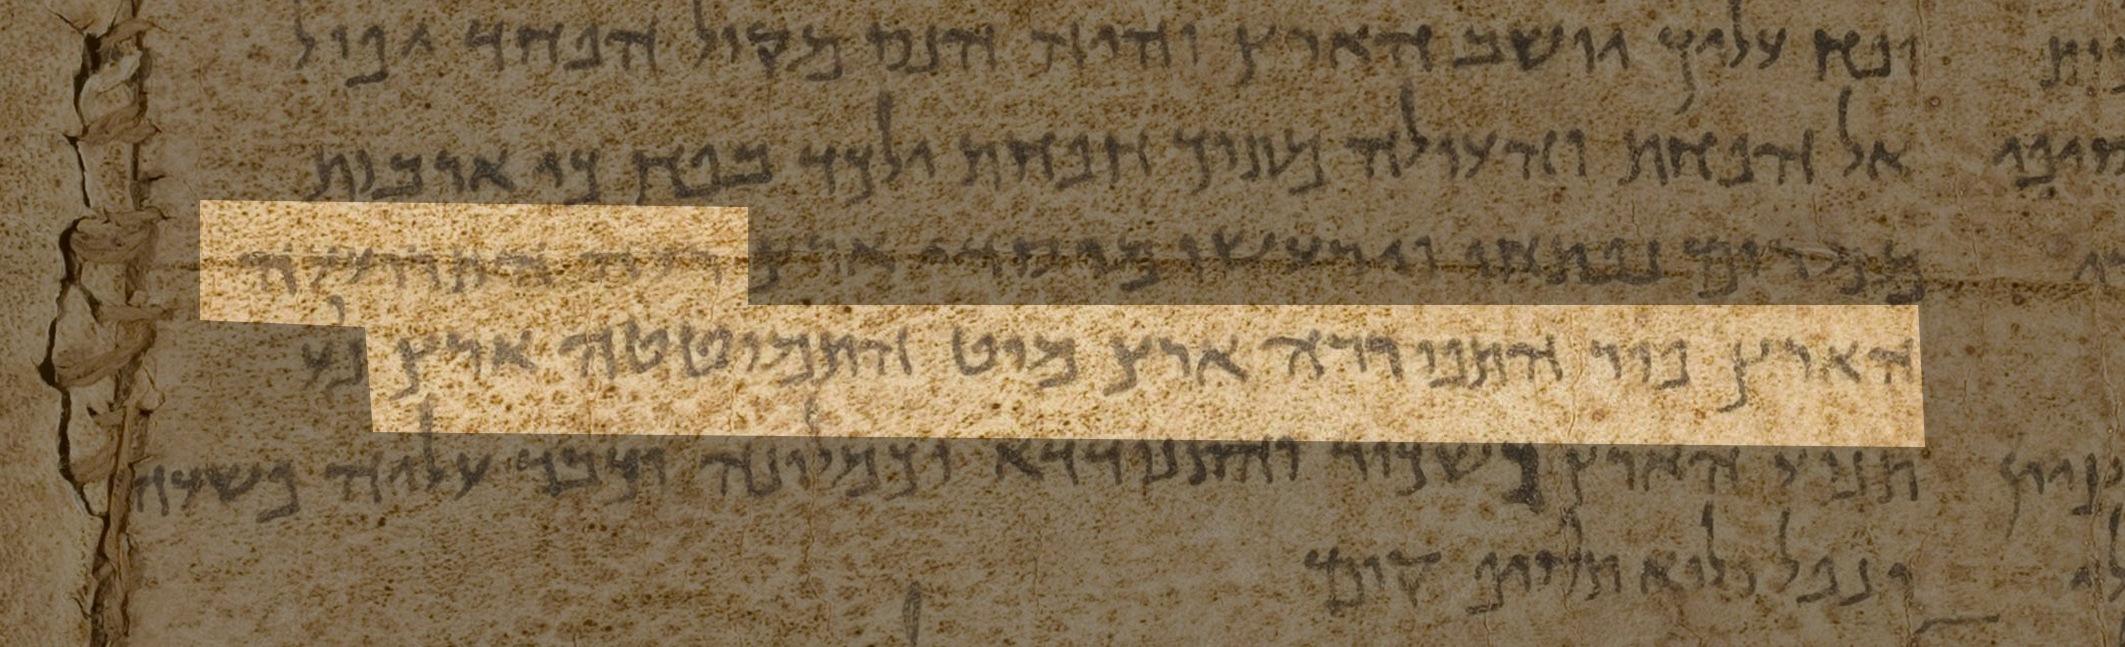 ופח עליך יושב הארץ והיה הנס מקול הפחד יפול
אל הפחת והעולה מתוך הפחת ילכד בפח כי ארבות
ממרום נפתחו וירעשו מוסדי ארץ רועה התרועעה
הארץ פור התפוררה ארץ מוט התמוטטה ארץ נוע
תנוע הארץ כשכור והתנודדא כמלונה וכבד עליה פשעה
ונפל ולוא תוסיף קום